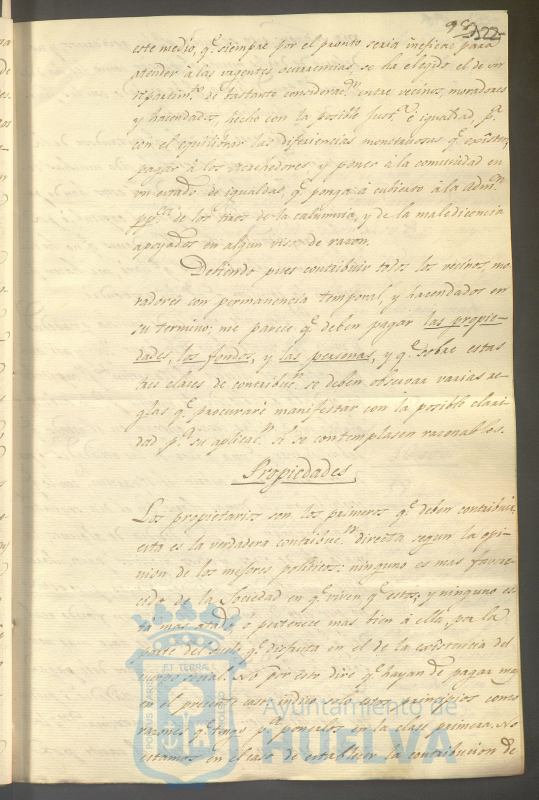 122
este medio, q.e siempre por el pronto seria ineficaz para
atender à las urgentes ocurrencias, se ha elegido el de un
repartim.to de bastante considerac.on entre vecinos, moradores
y hacendados, hecho con la posible just.a è igualdad, p.a
con el equilibrar las diferiencias monstruosas q.e existen,
pagar à los acrehedores y poner à la comunidad en
un estado de igualdad, q.e ponga à cubierto à la adm.on
pp.ca de los tiros de la calumnia, y de la maledicencia
apoyados en algun viso de razon.
Debiendo pues contribuir todos los vecinos, mo-
radores con permanencia temporal, y hacendados en
su termino; me parece q.e deben pagar las propie-
dades, los fondos, y las personas, y q.e sobre estas
tres clases de contribuc.n se deben observar varias re-
glas q.e procuraré manifestar con la posible clari-
dad p.a su aplicac.n si se contemplasen razonables.
Propiedades
Los propietarios son los primeros q.e deben contribuir,
esta es la verdadera contribuc.on directa segun la opi-
nion de los mejores politicos: ninguno es mas favore-
cido de la Sociedad en q.e viven q.e estos; y ninguno es-
tá mas atado, ò pertenece mas bien à ella, por la
parte del suelo q.e disfruta en el de la existencia del
cuerpo social. No por esto dire q.e hayan de pagar mas
en el presente caso, indico solo estos principios como
razones q.e tengo p.a ponerlos en la clase primera. No
estamos en el caso de establecer la contribucion de
PORTUS MARIS ET TERRAE CUSTODIA
Ayuntamiento de
HUELVA